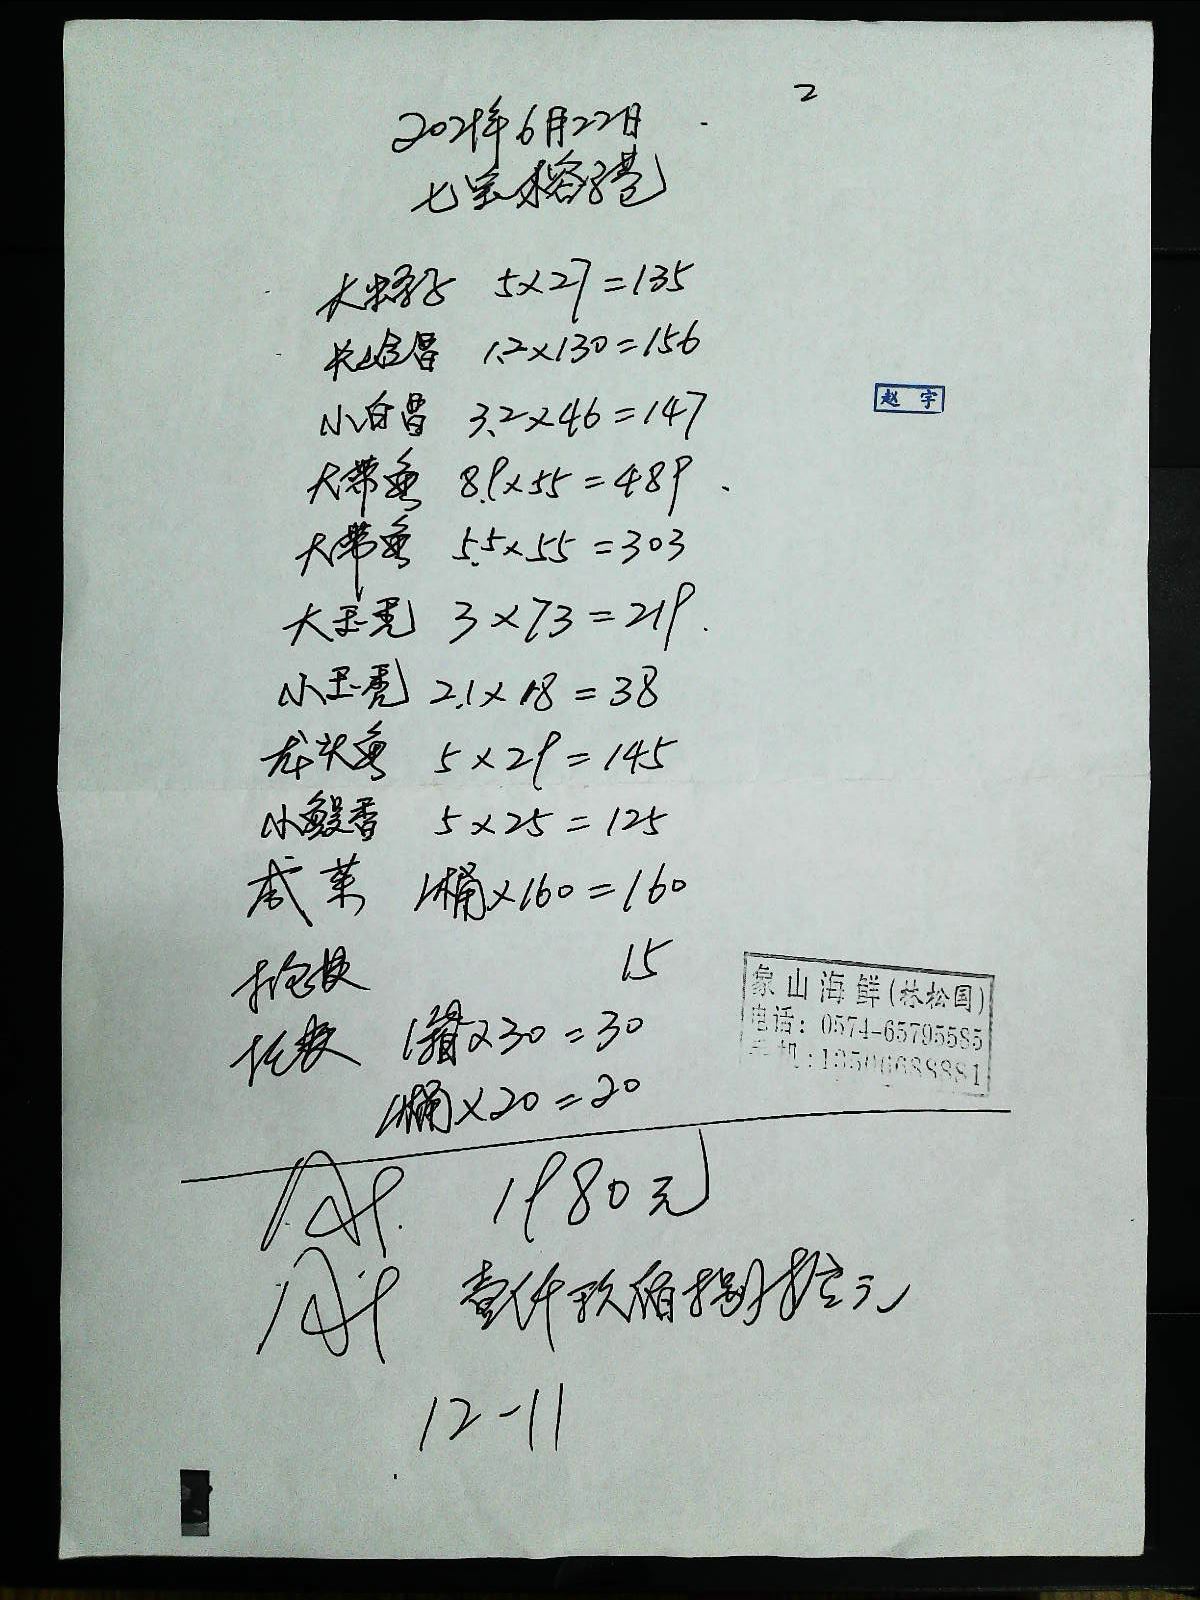 2
2021年6月22日
七宝榕港
大虾 5×27=135
1.2×130=156
小白昌 3.2×46=147
大带鱼 8.9×55=489
大带鱼 5.5×55=303
大玉秃 3×73=219
小玉秃 2.1×18=38
龙头鱼 5×29=145
小鳗香 5×25=125
咸菜 1桶×160=160
15
1箱×30=30
1桶×20=20
1980元
壹仟玖佰捌拾元
12-11
赵宇
象山海鲜(林松国)
电话:0574-65795585
手机:13506688881